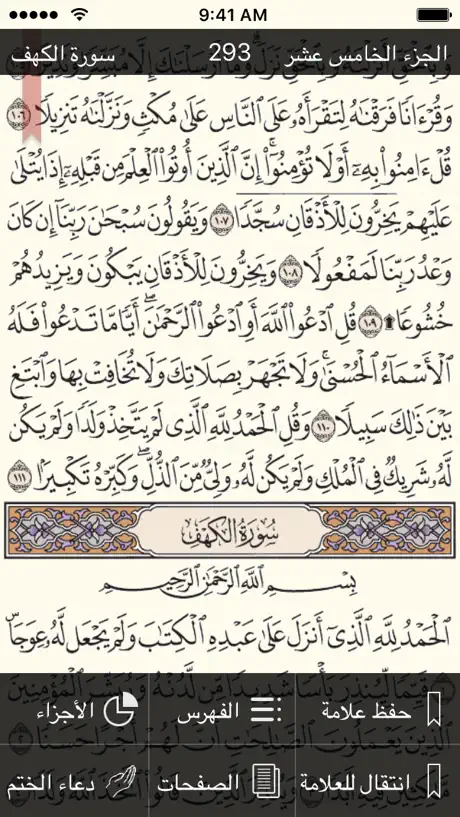 9:41 AM
الجزء الخامس عشر 293 سورة الكهف
وَقُرْءَانًا فَرَقْنَٰهُ لِتَقْرَأَهُۥ عَلَى ٱلنَّاسِ عَلَىٰ مُكْثٍ وَنَزَّلْنَٰهُ تَنزِيلًا ١٠٦
قُلْ ءَامِنُوا۟ بِهِۦٓ أَوْ لَا تُؤْمِنُوٓا۟ ۚ إِنَّ ٱلَّذِينَ أُوتُوا۟ ٱلْعِلْمَ مِن قَبْلِهِۦٓ إِذَا يُتْلَىٰ
عَلَيْهِمْ يَخِرُّونَ لِلْأَذْقَانِ سُجَّدًا ١٠٧ وَيَقُولُونَ سُبْحَٰنَ رَبِّنَآ إِن كَانَ
وَعْدُ رَبِّنَا لَمَفْعُولًا ١٠٨ وَيَخِرُّونَ لِلْأَذْقَانِ يَبْكُونَ وَيَزِيدُهُمْ
خُشُوعًا ١٠٩ قُلِ ٱدْعُوا۟ ٱللَّهَ أَوِ ٱدْعُوا۟ ٱلرَّحْمَٰنَ ۖ أَيًّا مَّا تَدْعُوا۟ فَلَهُ
ٱلْأَسْمَآءُ ٱلْحُسْنَىٰ ۚ وَلَا تَجْهَرْ بِصَلَاتِكَ وَلَا تُخَافِتْ بِهَا وَٱبْتَغِ
بَيْنَ ذَٰلِكَ سَبِيلًا ١١٠ وَقُلِ ٱلْحَمْدُ لِلَّهِ ٱلَّذِى لَمْ يَتَّخِذْ وَلَدًا وَلَمْ يَكُن
لَّهُۥ شَرِيكٌ فِى ٱلْمُلْكِ وَلَمْ يَكُن لَّهُۥ وَلِىٌّ مِّنَ ٱلذُّلِّ ۖ وَكَبِّرْهُ تَكْبِيرًۢا ١١١
سُورَةُ الكَهْفِ
بِسْمِ ٱللَّهِ ٱلرَّحْمَٰنِ ٱلرَّحِيمِ
ٱلْحَمْدُ لِلَّهِ ٱلَّذِىٓ أَنزَلَ عَلَىٰ عَبْدِهِ ٱلْكِتَٰبَ وَلَمْ يَجْعَل لَّهُۥ عِوَجَاۜ
حفظ علامة الفهرس الأجزاء
انتقال للعلامة الصفحات دعاء الختم